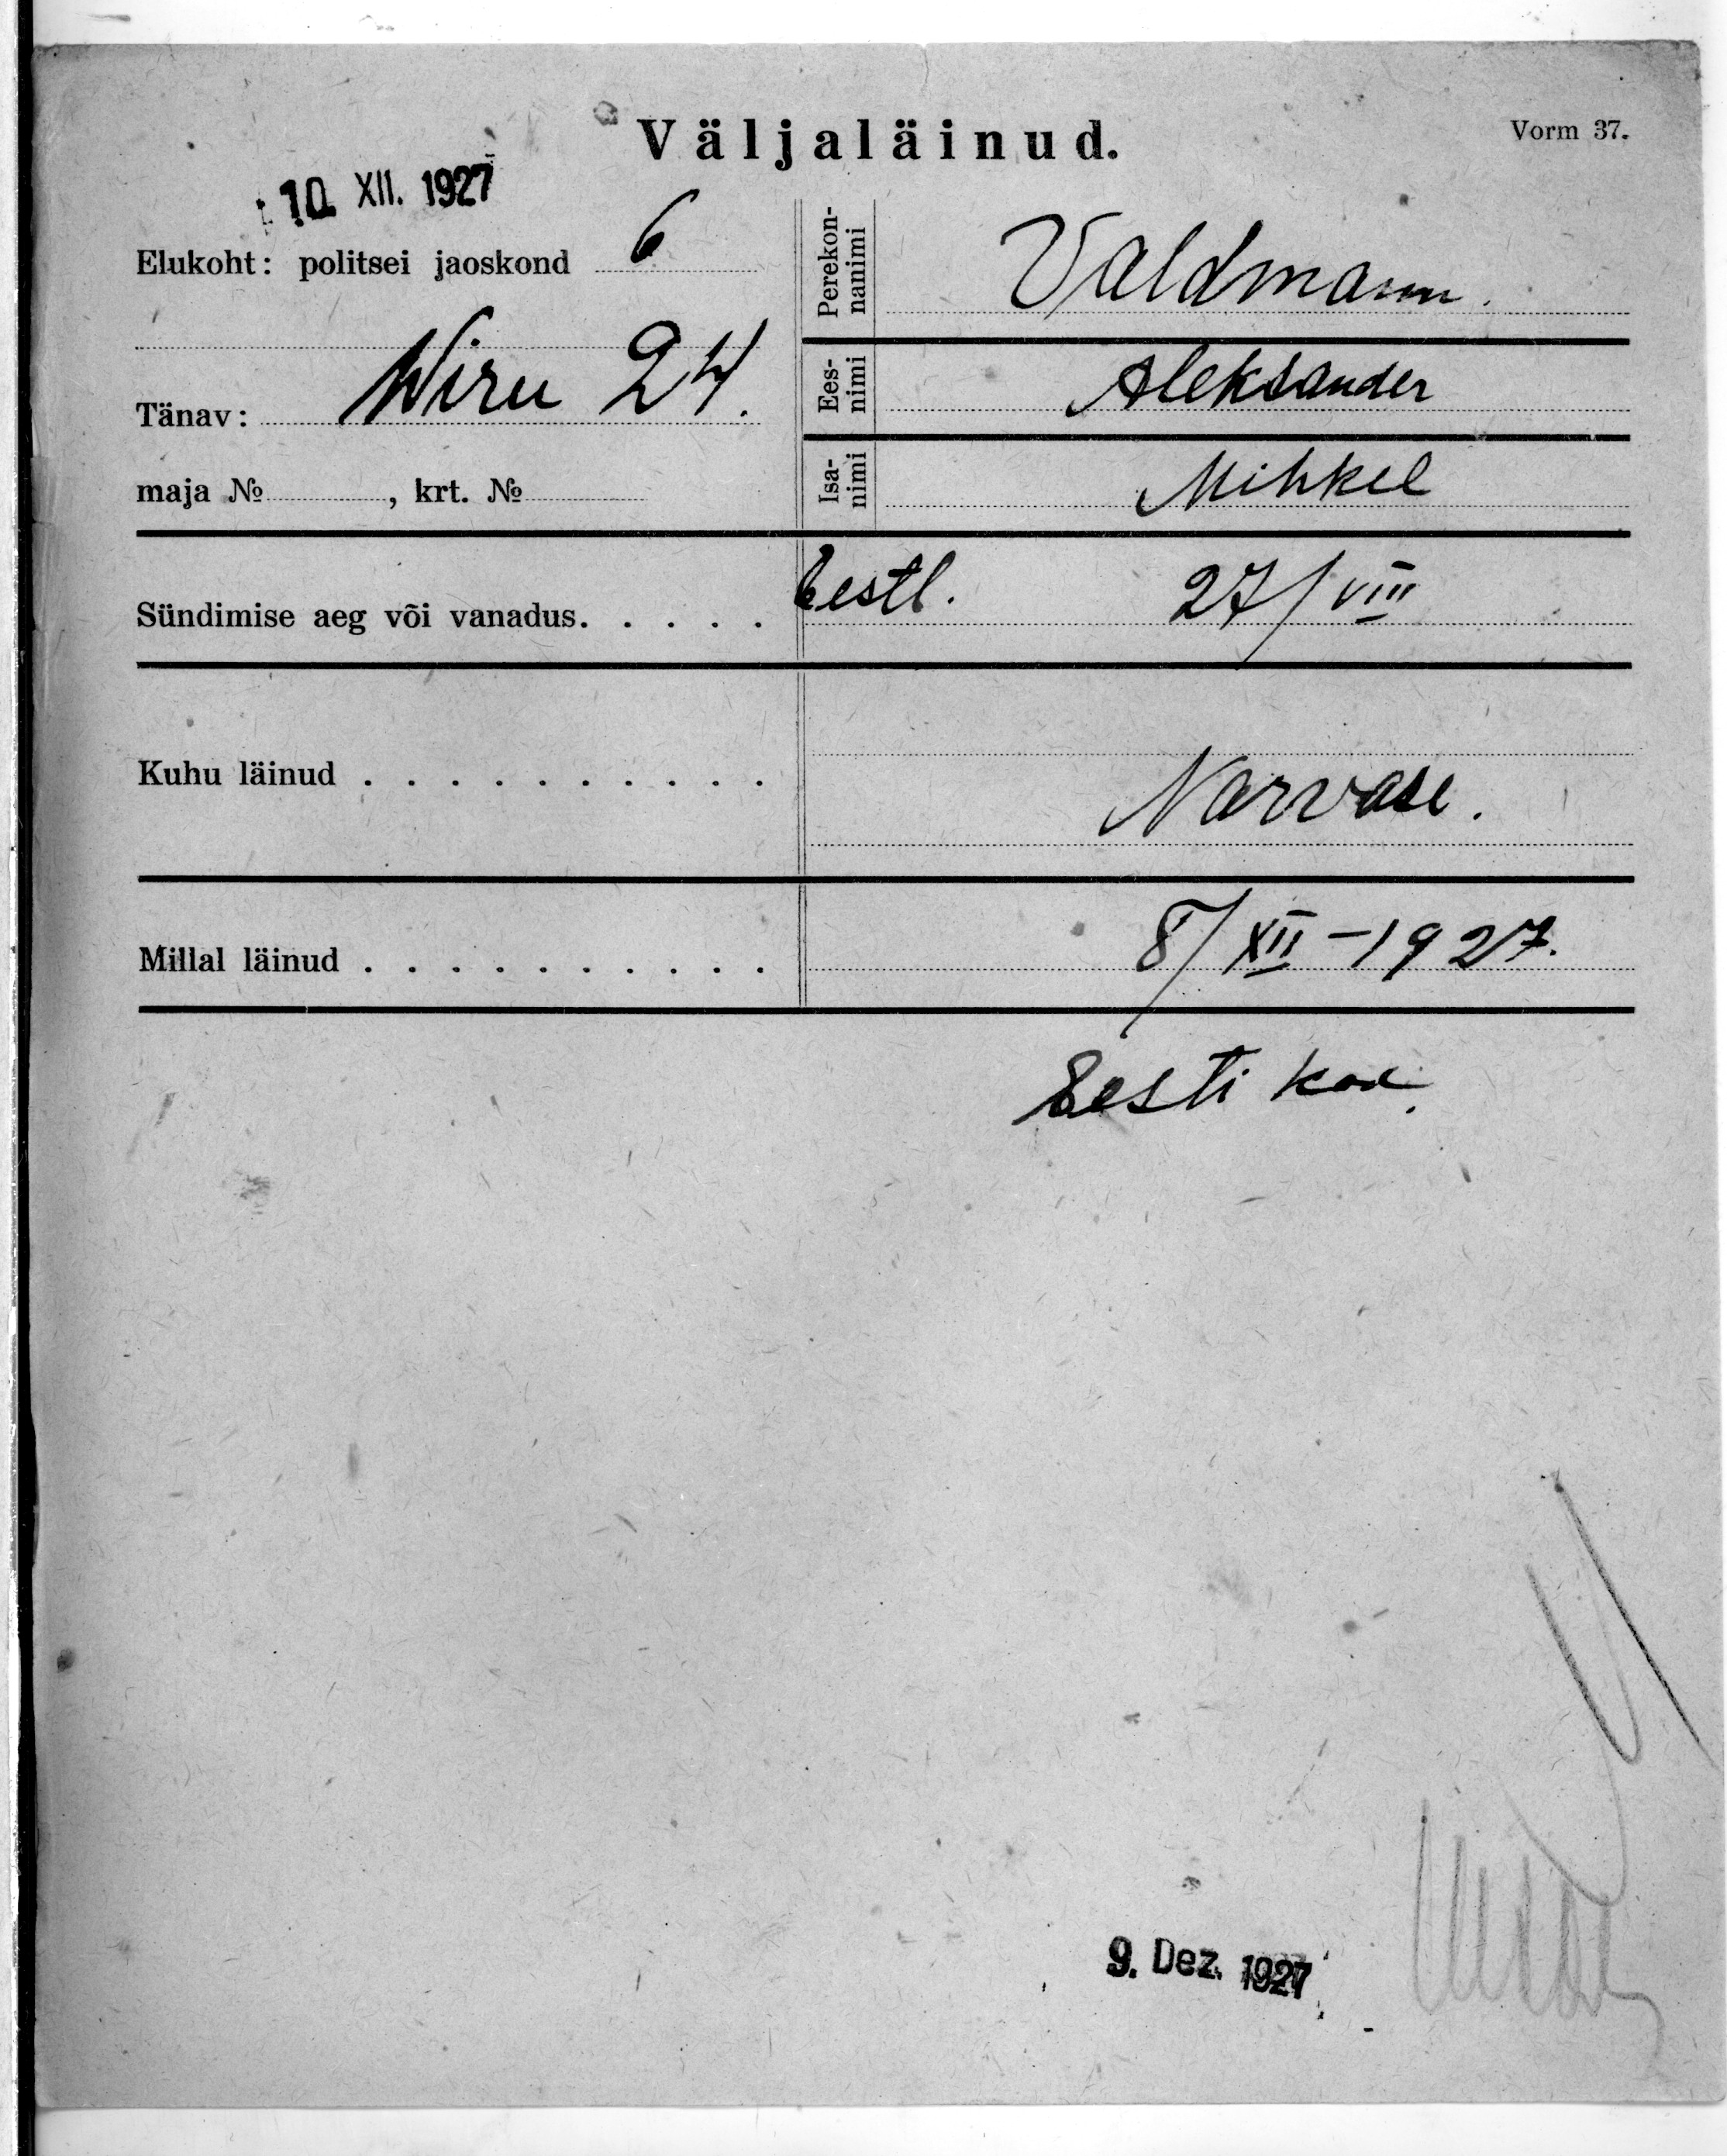 Väljaläinud.
Vorm 37.
10. XII. 1927
Elukoht: politsei jaoskond 6
Tänav: Wiru 24.
maja № , krt. №
Perekon-
nanimi
Valdmann.
Ees-
nimi
Aleksander
Isa-
nimi
Mihkel
Sündimise aeg või vanadus. . . . . Eestl. 27/VIII
Kuhu läinud . . . . . . . . . .
Narvase.
Millal läinud . . . . . . . . . . 8/XII-1927.
Eesti kod.
9. Dez. 1927